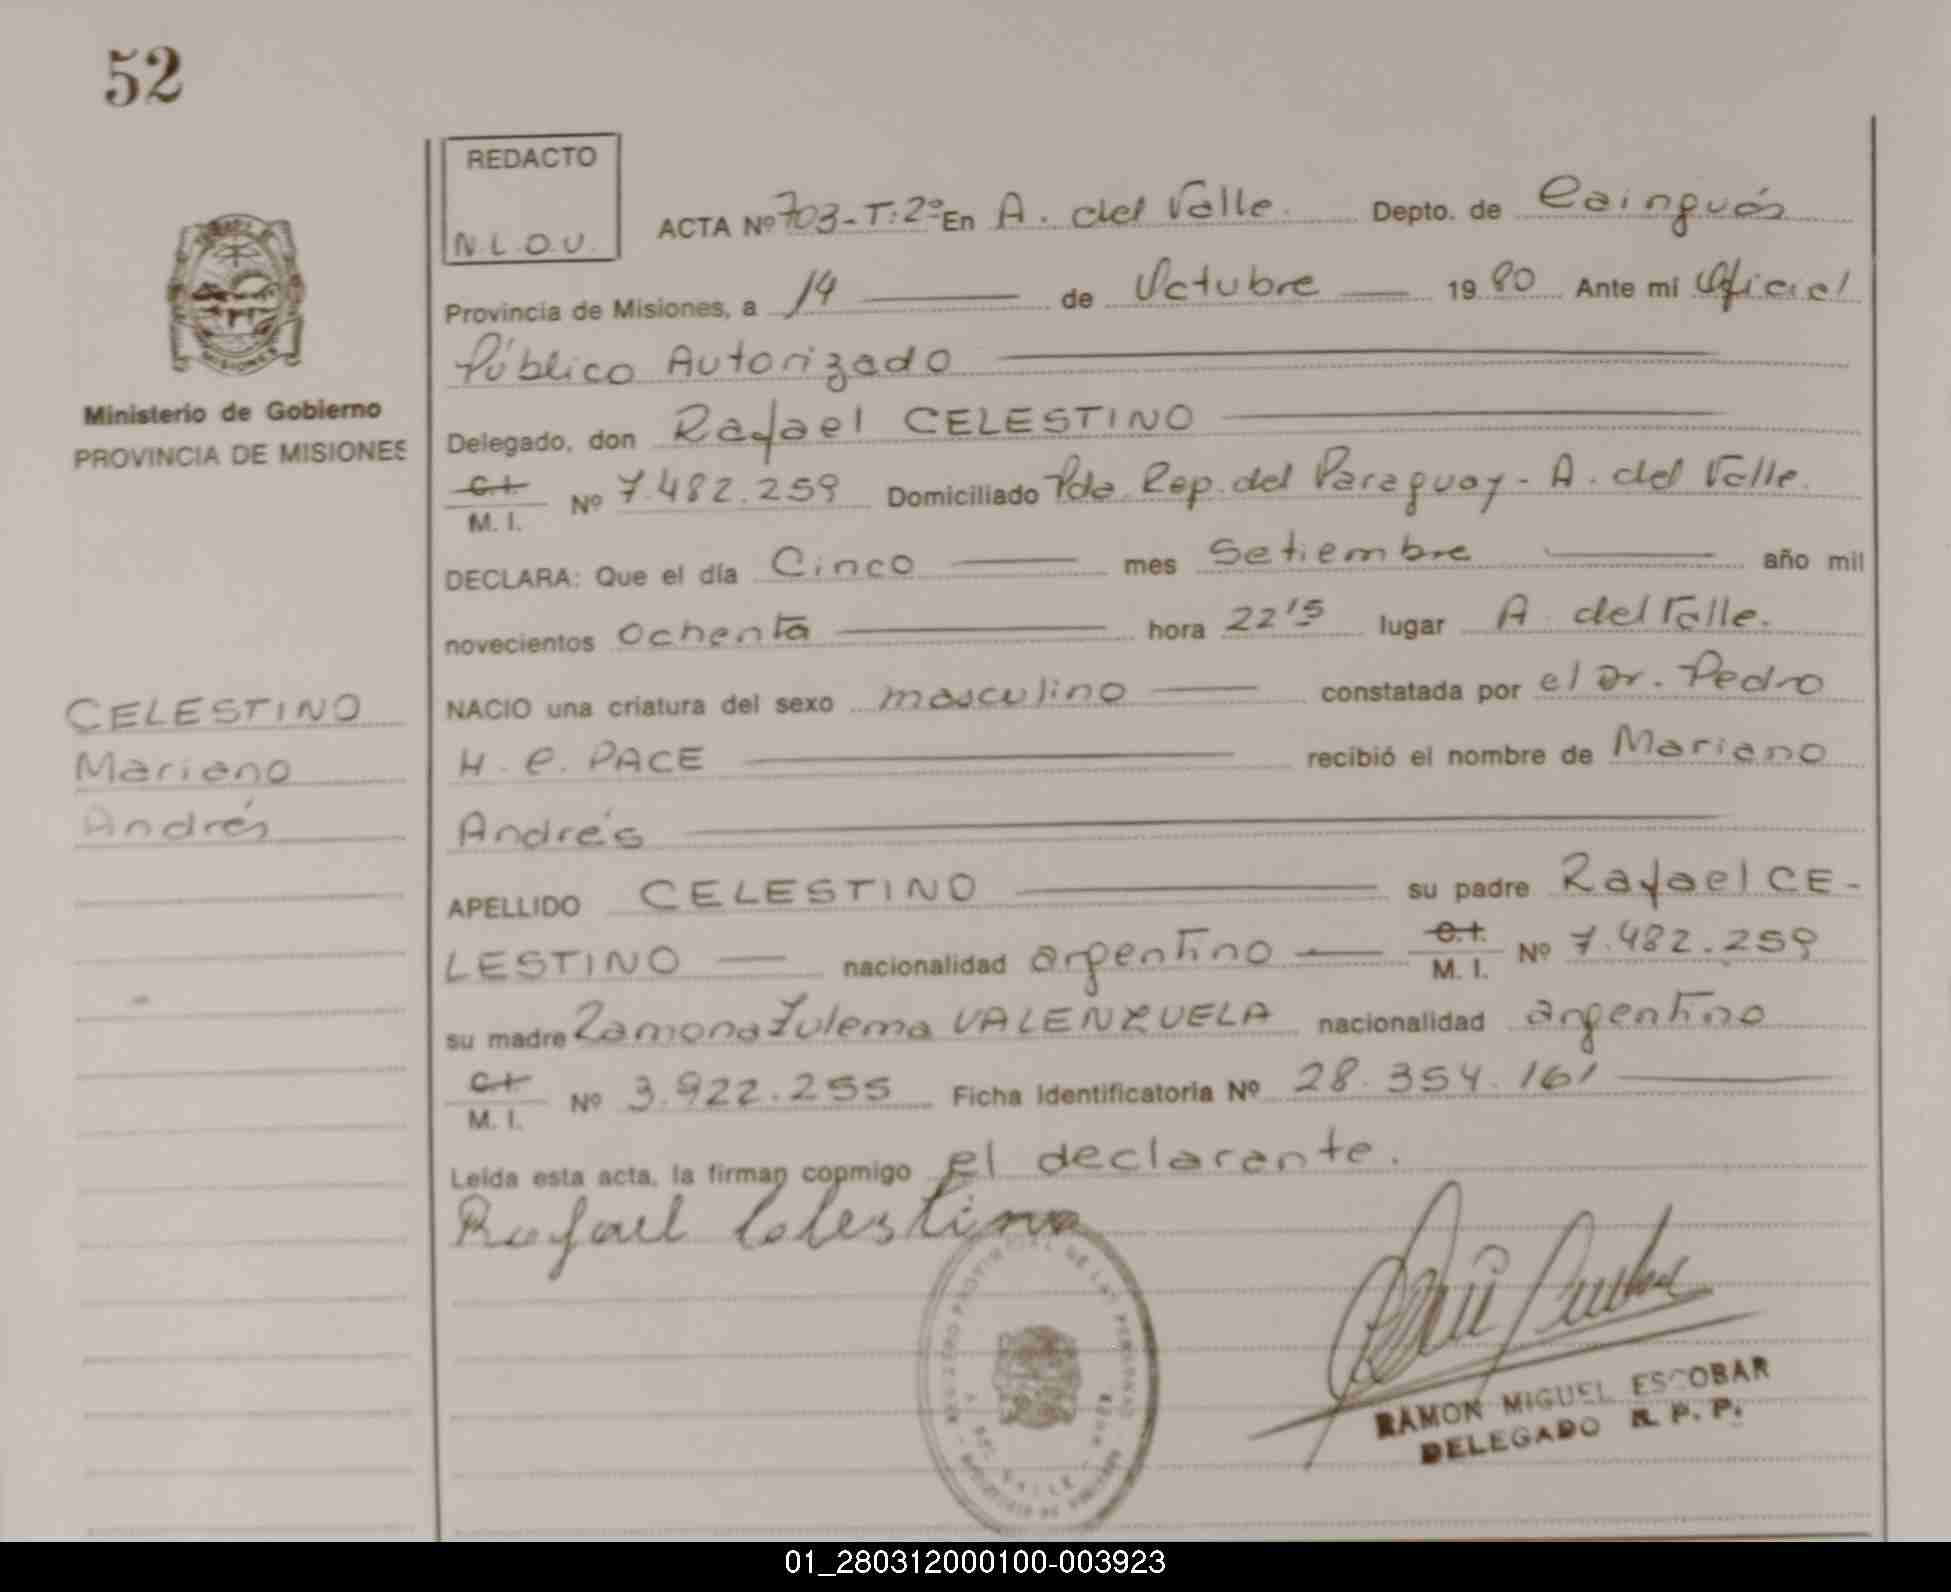 52
REDACTO
N.L.O.V.
ACTA Nº 703-T:2º En A. del Valle. Depto. de Cainguás
Provincia de Misiones, a 14 de Octubre 1980 Ante mí Oficial
Público Autorizado
Delegado, don Rafael CELESTINO
C.I.
M. I. Nº 7.482.259 Domiciliado Pda. Rep. del Paraguay - A. del Valle.
DECLARA: Que el día Cinco mes Setiembre año mil
novecientos Ochenta hora 22 15 lugar A. del Valle.
NACIO una criatura del sexo masculino constatada por el Dr. Pedro
H. C. PACE recibió el nombre de Mariano
Andrés
APELLIDO CELESTINO su padre Rafael CE-
LESTINO nacionalidad argentino C.I.
M. I. Nº 7.482.259
su madre Ramona Zulema VALENZUELA nacionalidad argentino
C.I.
M. I. Nº 3.922.255 Ficha Identificatoria Nº 28.354.161
Leída esta acta, la firman copmigo el declarante.
Rafael Celestino
RAMON MIGUEL ESCOBAR
DELEGADO R. P. P.
MISIONES
Ministerio de Gobierno
PROVINCIA DE MISIONES
CELESTINO
Mariano
Andrés
REGISTRO PROVINCIAL DE LAS PERSONAS
A. DEL VALLE
01_280312000100-003923